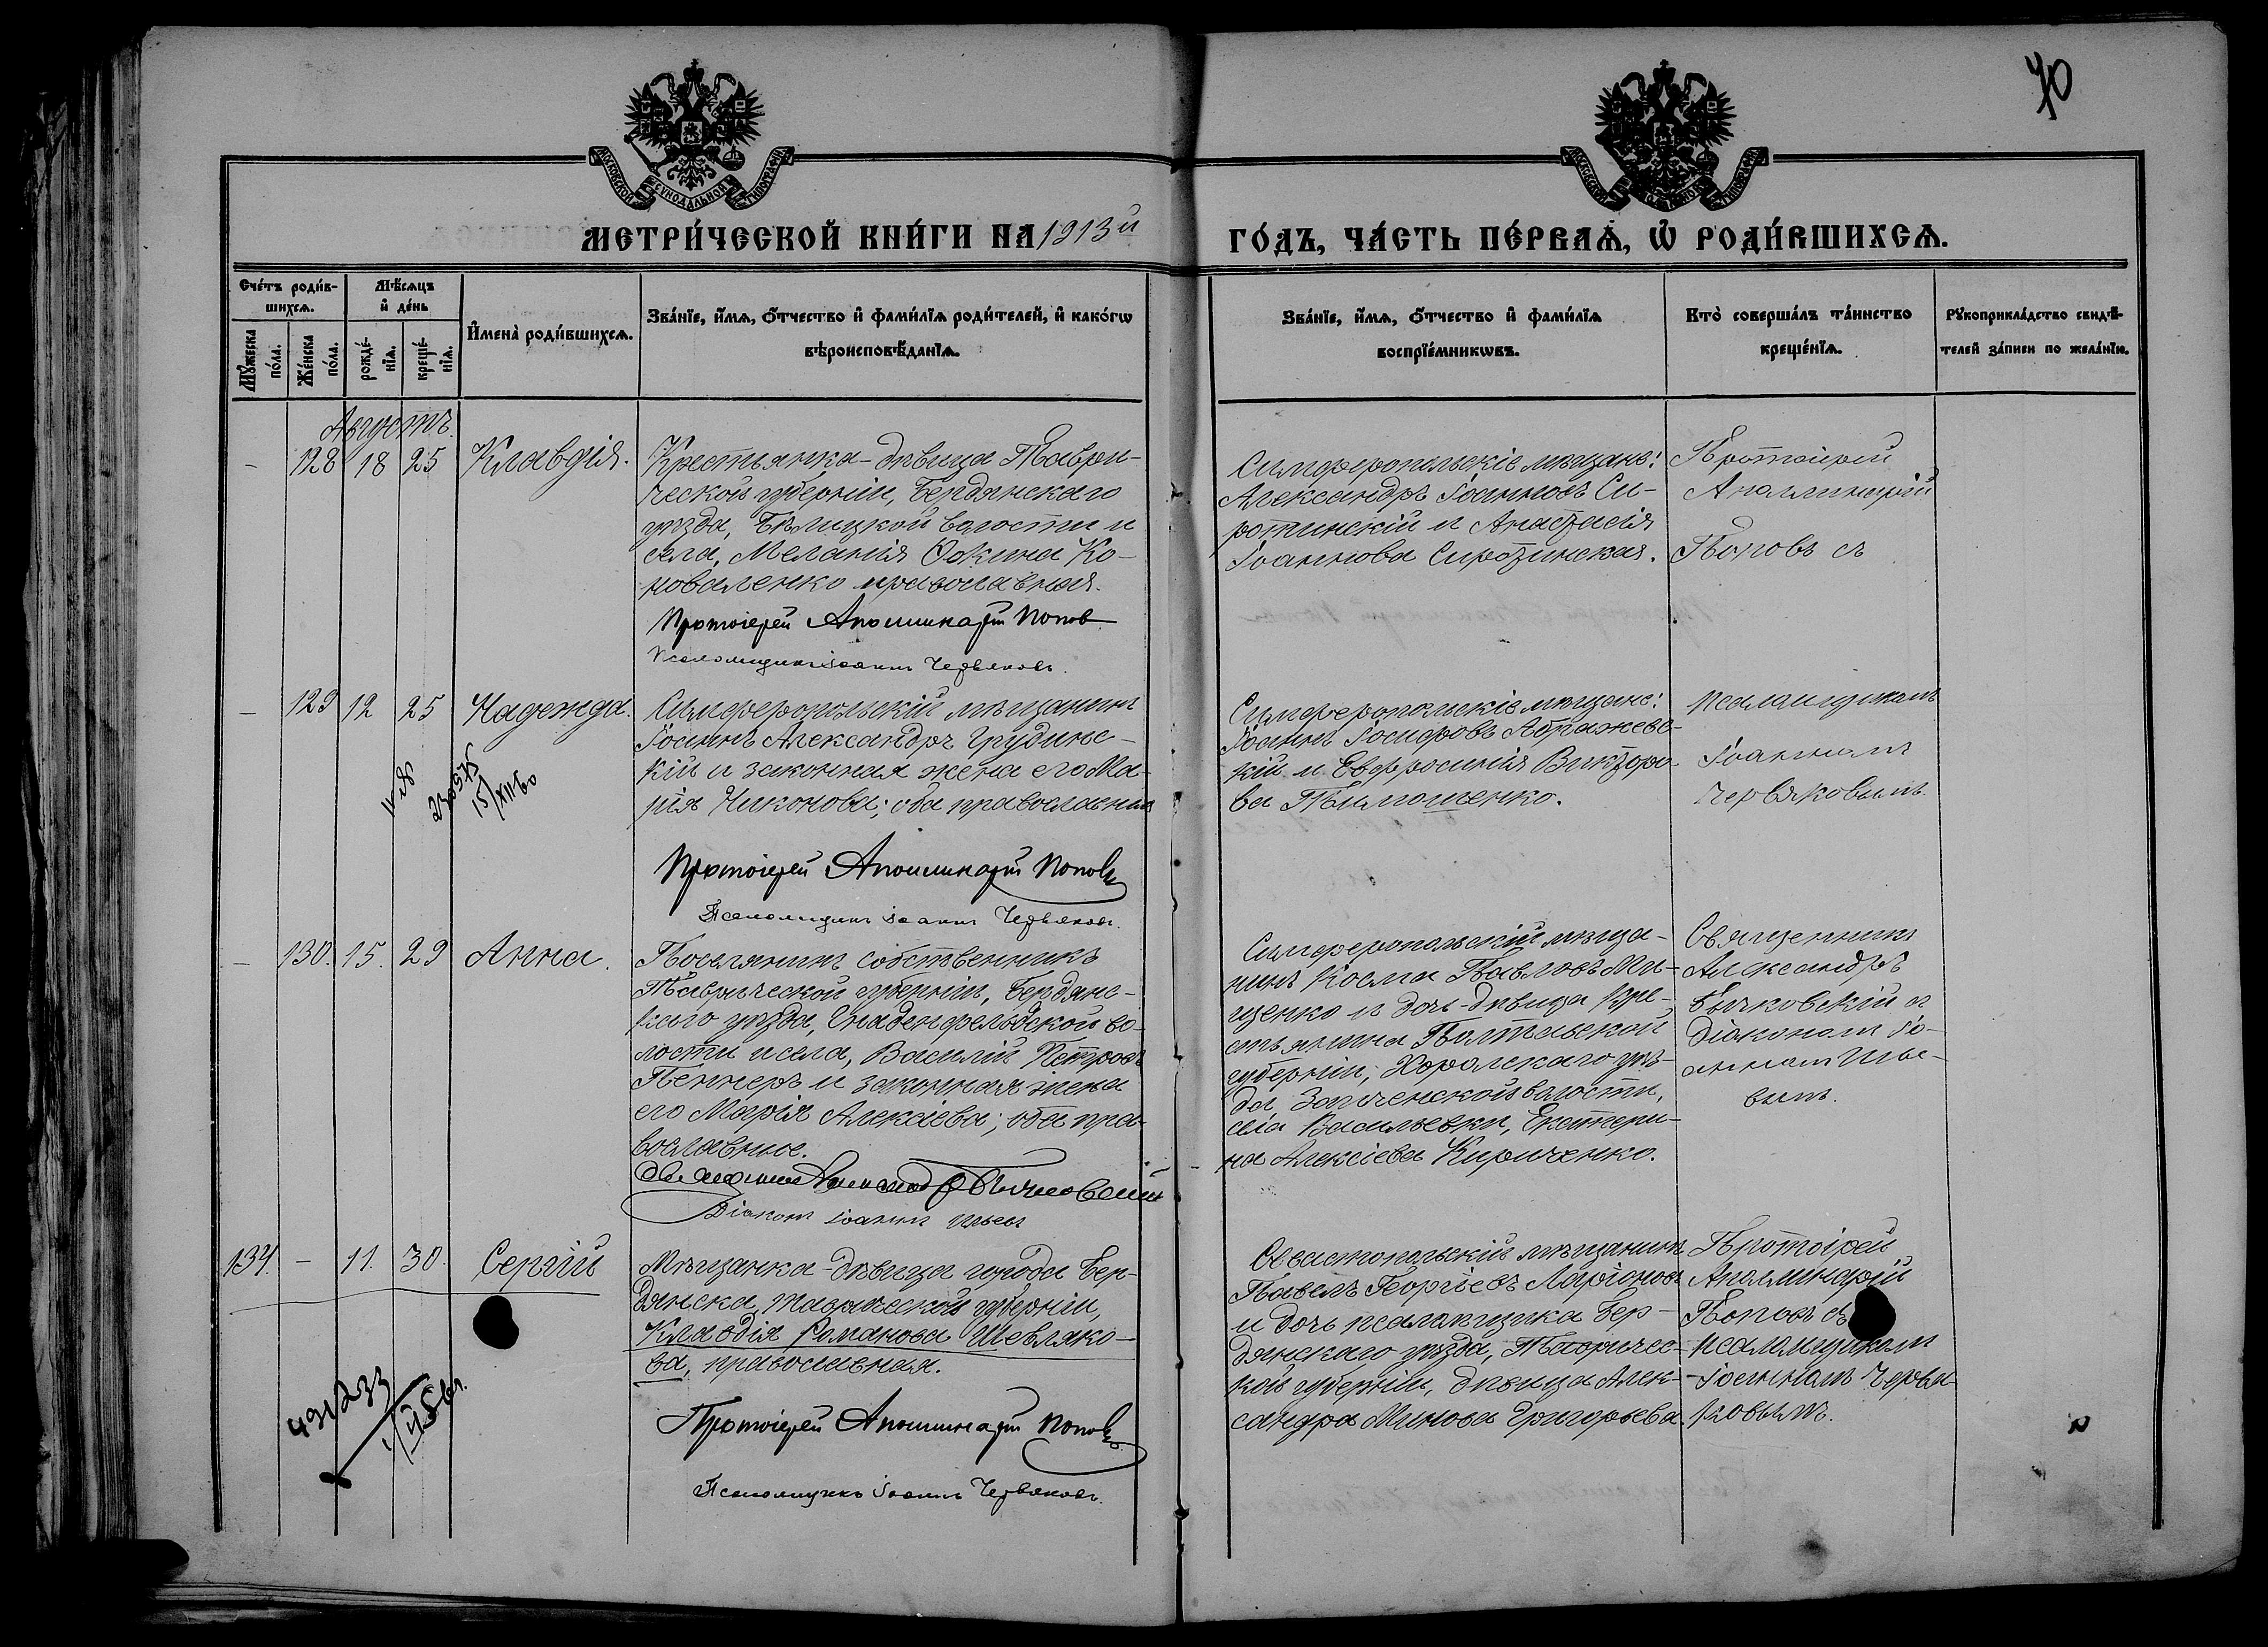 70
МОСКОВСКОЙ СѴНОДАЛЬНОЙ ТИПОГРАФІИ
МЕТРИ́ЧЕСКОЙ КНИ́ГИ НА 1913й
ГО́ДЪ, ЧА́СТЬ ПЕ́РВАѦ, Ѡ҆ РОДИ́ВШИХСѦ.
Сче́тъ роди́в-
шихсѧ.
Мꙋ́жеска
по́ла.
Же́нска
по́ла.
Мѣ́сѧцъ
и҆ де́нь
рожде́-
нїѧ.
креще́-
нїѧ.
И҆мена̀ роди́вшихсѧ.
Зва́нїе, и҆́мѧ, ѻ҆́тчество и҆ фами́лїѧ роди́телей, и҆ како́гѡ
вѣроисповѣ́данїѧ.
Зва́нїе, и҆́мѧ, ѻ҆́тчество и҆ фами́лїѧ
воспрїе́мникѡвъ.
Кто̀ соверша́лъ та́инство
креще́нїѧ.
Рꙋкоприкла́дство свидѣ́-
телей за́писи по жела́нїю.
Августъ.
- 128 18 25 Клавдія.
Крестьянка-дѣвица Таври-
ческой губерніи, Бердянскаго
уѣзда, Бѣлицкой волости и
села, Меланія Фокина Ко-
новаленко православная.
Протоіерей Аполлинарій Попов
Псаломщикъ Іоаннъ Червяковъ.
Симферопольскіе мѣщане:
Александръ Іоанновъ Си-
ротинскій и Анастасія
Іоаннова Сиротинская.
Протоіерей
Аполлинарій
Поповъ съ
- 129 12 25 Надежда.
Симферопольскій мѣщанинъ
Іоаннъ Александръ Грудинс-
кій и законная жена его Ма-
рія Никонова; оба православные
Протоіерей Аполлинарій Поповъ
Псаломщикъ Іоаннъ Червяковъ.
Симферопольскіе мѣщане:
Іоаннъ Іосифовъ Абражевс-
кій и Евфросинія Викторо-
ва Тимошенко.
Псаломщикомъ
Іоанномъ
Червяковымъ.
15/XII-60
- 130. 15. 29 Анна.
Поселянинъ собственникъ
Таврической губерніи, Бердянс-
каго уѣзда, Гнаденфельдской во-
лости и села, Василій Петровъ
Пеннеръ и законная жена
его Марія Алексіева; оба пра-
вославные.
Священникъ Александръ Бычковскій
Діаконъ Іоаннъ Ильевъ
Симферопольскій мѣща-
нинъ Косма Павловъ Ми-
щенко и дочь-дѣвица кре-
стьянина Полтавской
губерніи, Хорольскаго уѣз-
да, волости,
села Васильевки, Екатери-
на Алексіева Кириченко.
Священникъ
Александръ
Бычковскій съ
Діакономъ Іо-
анномъ Илье-
вымъ.
134. - 11. 30. Сергій
Мѣщанка-дѣвица города Бер-
дянска, Таврической губерніи,
Клавдія Романова Шевляко-
ва, православная.
Протоіерей Аполлинарій Поповъ
Псаломщикъ Іоаннъ Червяковъ.
Севастопольскій мѣщанинъ
Павелъ Георгіевъ Ларіоновъ
и дочь псаломщика Бер-
дянскаго уѣзда, Тавричес-
кой губерніи, дѣвица Алек-
сандра Минова Григорьева.
Протоіерей
Аполлинарій
Поповъ съ
псаломщикомъ
Іоанномъ Червя-
ковымъ.